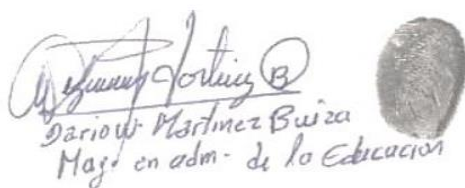 Martinez B
Dariow Martinez Buiza
Mag. en adm- de la Educación